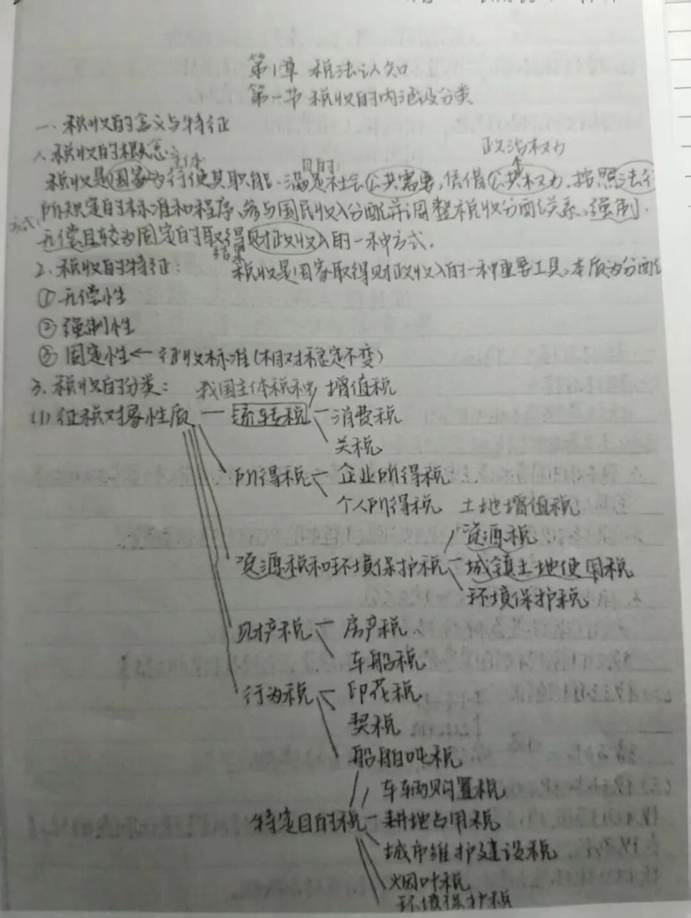 第1章 税法认知
第一节 税收的内涵及分类
一、税收的含义与特征
1、税收的概念:
主体 目的 政治权力
税收是国家为行使其职能、满足社会公共需要,凭借公共权力,按照法律
所规定的标准和程序,参与国民收入分配并调整税收分配关系,强制、
形式
无偿且较为固定的取得财政收入的一种方式.
结果
2、税收的特征: 税收是国家取得财政收入的一种重要工具,本质为分配
①无偿性
②强制性
③固定性← 征收标准(相对稳定不变)
3、税收的分类: 我国主体税种 增值税
(1)征税对象性质 — 流转税 — 消费税
关税
所得税 — 企业所得税
个人所得税 土地增值税
资源税
资源税和环境保护税 — 城镇土地使用税
环境保护税
财产税 房产税、
车船税
行为税 印花税
契税
船舶吨税
车辆购置税
特定目的税 — 耕地占用税
城市维护建设税
烟叶税
环境保护税